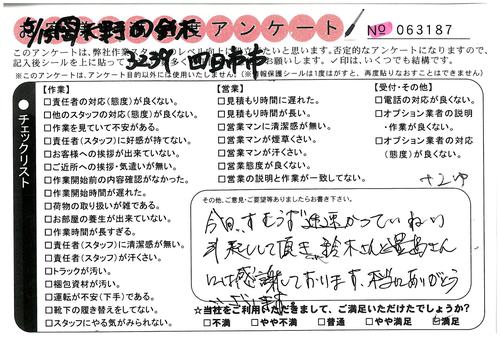 アンケート
No 063187
このアンケートは、弊社作業スタッフのレベル向上に
と思います。否定的なアンケートになりますので、
記入後シールを上に貼って
✓印は、いくつでも結構です。
※このアンケートは、アンケート目的以外には使用いたしません。(※情報保護シールは1度はがすと、再度貼りなおすことはできません)
3239 四日市市
チェックリスト
【作業】
□責任者の対応(態度)が良くない。
□他のスタッフの対応(態度)が良くない。
□作業を見ていて不安がある。
□責任者(スタッフ)に好感が持てない。
□お客様への挨拶が出来ていない。
□ご近所への挨拶・気遣いが無い。
□作業開始前の内容確認がなかった。
□作業開始時間が遅れた。
□荷物の取り扱いが雑である。
□お部屋の養生が出来ていない。
□作業時間が長すぎる。
□責任者(スタッフ)に清潔感が無い。
□責任者(スタッフ)が汗くさい。
□トラックが汚い。
□梱包資材が汚い。
□運転が不安(下手)である。
□靴下の履き替えをしてない。
□スタッフにやる気がみられない。
【営業】
□見積もり時間に遅れた。
□見積もり時間が長い。
□営業マンに清潔感が無い。
□営業マンが煙草くさい。
□営業マンが汗くさい。
□営業態度が良くない。
□営業の説明と作業が一致してない。
【受付・その他】
□電話の対応が良くない。
□オプション業者の説明
・作業が良くない。
□オプション業者の対応
(態度)が良くない。
その他、ご意見・ご要望等ありましたらお書き下さい。
今日
迅速かつていねい
して頂き 鈴木さんと豊島さん
には感謝しております。本当にありがとう
ございます。
☆当社をご利用いただきまして、ご満足いただけたでしょうか?
□不満 □やや不満 □普通 □やや満足 ☑満足